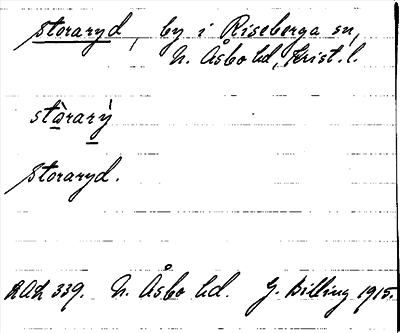 Storaryd, by i Riseberga sn,
N. Åsbo hd, Krist. l.
stàrarỳ
Storaryd.
RAÄ 339. N. Åsbo hd. G. Billing 1915.